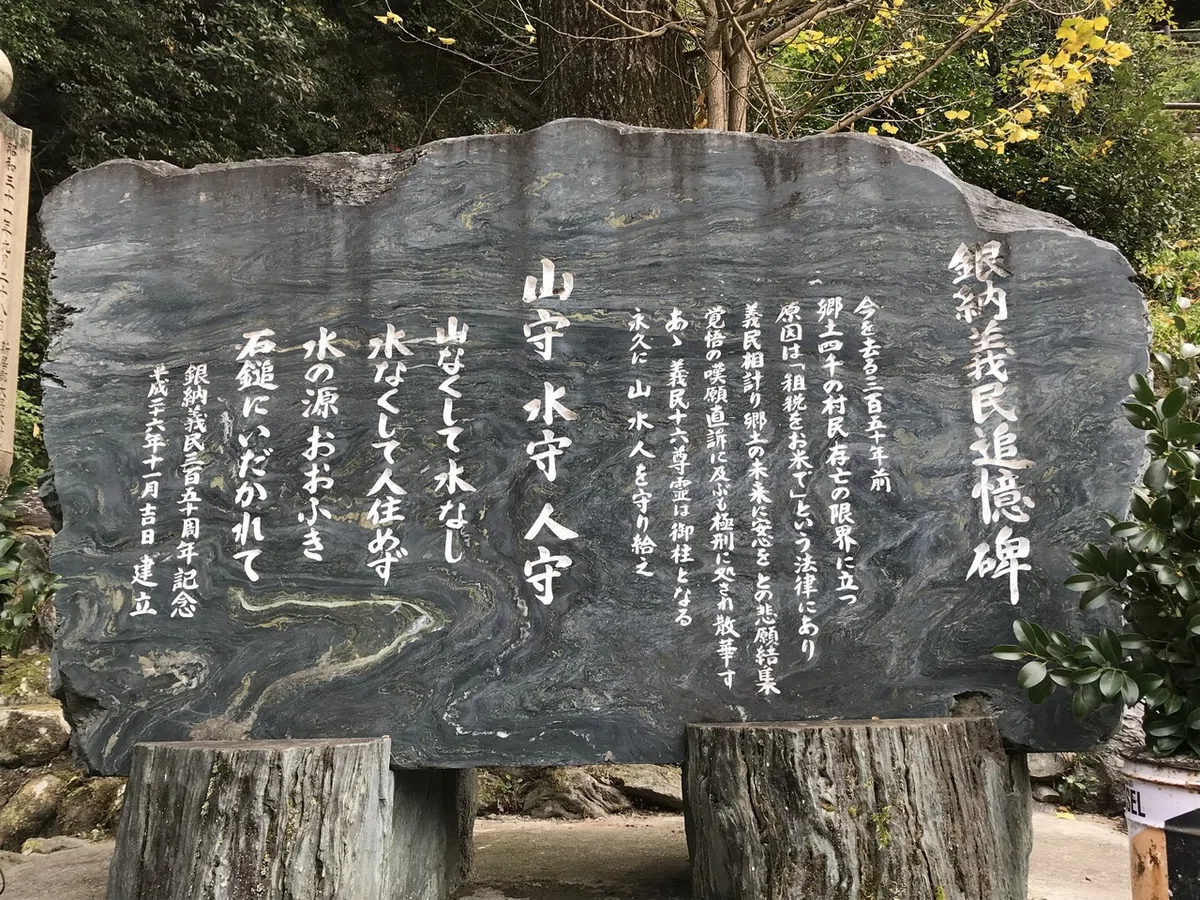 銀納義民追憶碑
今を去る三百五十年前
郷土四千の村民存亡の限界に立つ
原因は「租税をお米で」という法律にあり
義民相計り郷土の未来に窓を との悲願結集
覚悟の嘆願直訴に及ぶも極刑に処され散華す
あゝ 義民十六尊霊は御柱となる
永久に 山 水 人 を守り給え
山守 水守 人守
山なくして水なし
水なくして人住めず
水の源 おおふき
石鎚にいだかれて
銀納義民三百五十周年記念
平成二十六年十一月 吉日 建立
昭和三十一年九月二十八日
SEL